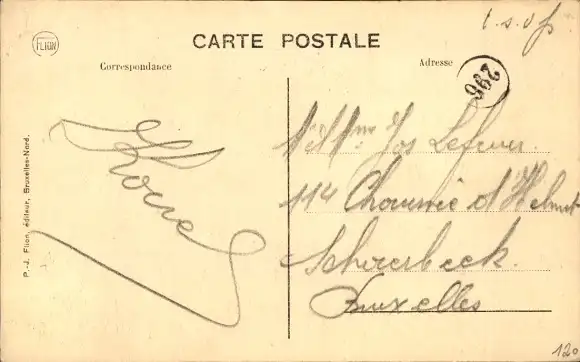 t.s.v.p.
FLION
CARTE POSTALE
Correspondance
Adresse
296
Jos Lefevre.
114 Chaussée d'Helmet
Schaerbeek.
Bruxelles
P.-J. Flion, éditeur, Bruxelles-Nord.
120